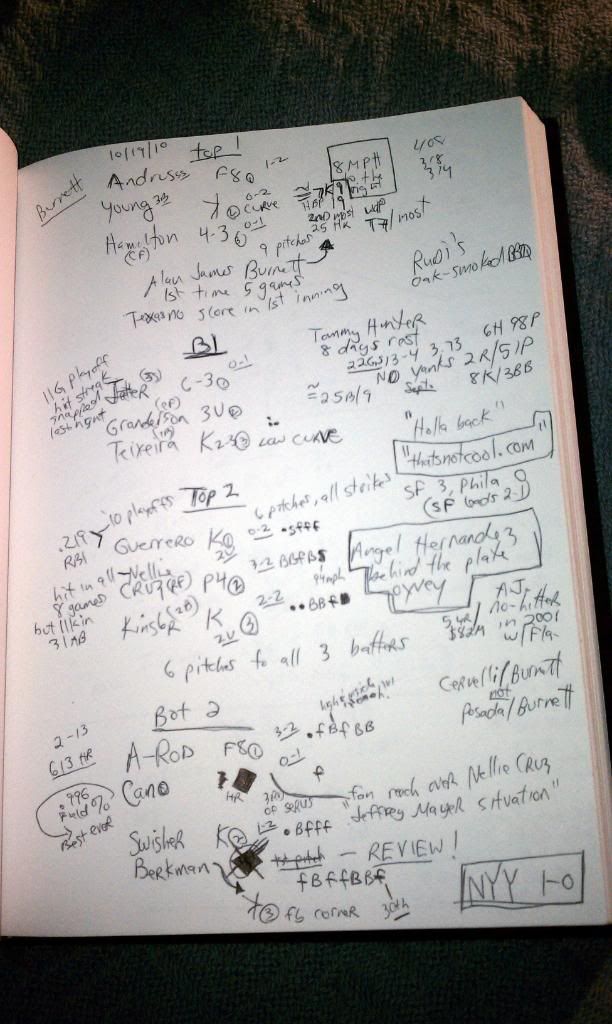 10/19/10 Top 1
Burnett
Andruss F8① 1-2
Young 3B ② 0-2 CURVE
Hamilton (CF) 4-3③ 0-1
8 MPH to the right
408
318
314
≈ 7K 9
HBP 9 WP
2nd most T7/most
25 HR
9 pitches
Alan James Burnett
1st time 5 games
Texas no score in 1st inning
Rudi's
oak-smoked BBQ
B1
11G playoff
hit streak
snapped
last night
Jeter (SS) 6-3① 0-1
Granderson (CF) 3U②
Teixeira (1B) K23③ LOW CURVE
Tommy Hunter
8 days rest
22GS 13-4 3.73
NO Yanks
Sept.
≈ 25B/9
6H 98P
2R/5IP
8K/3BB
"Holla back"
"thatsnotcool.com"
SF 3, Phila 0
(SF leads 2-1)
Top 2
6 pitches, all strikes
.219 10 playoffs
RBI
Guerrero K① 0-2 •sfff
2U
hit in all
8 games
but 11K in
31 AB
Nellie
CRUZ (RF) P4② 3-2 BBfBS
94mph
Kinsler (2B) K③ 2-2 ••BBf
2U
6 pitches to all 3 batters
Angel Hernandez
behind the plate
oyvey
A.J.
no-hitter
in 2001
w/Fla.
5yr/
$82M
Cervelli/Burnett
not
Posada/Burnett
Bot 2
2-13
613 HR
A-ROD F8① 3-2 •fBfBB
0-1
f
Cano HR
3rd of series
.996
field %
Best ever
"fan reach over Nellie CRUZ
"Jeffrey Mayer situation"
Swisher K② 1-2 •Bfff
Berkman 1st pitch — REVIEW!
fBffBBf
③ f6 corner 30th
NYY 1-0